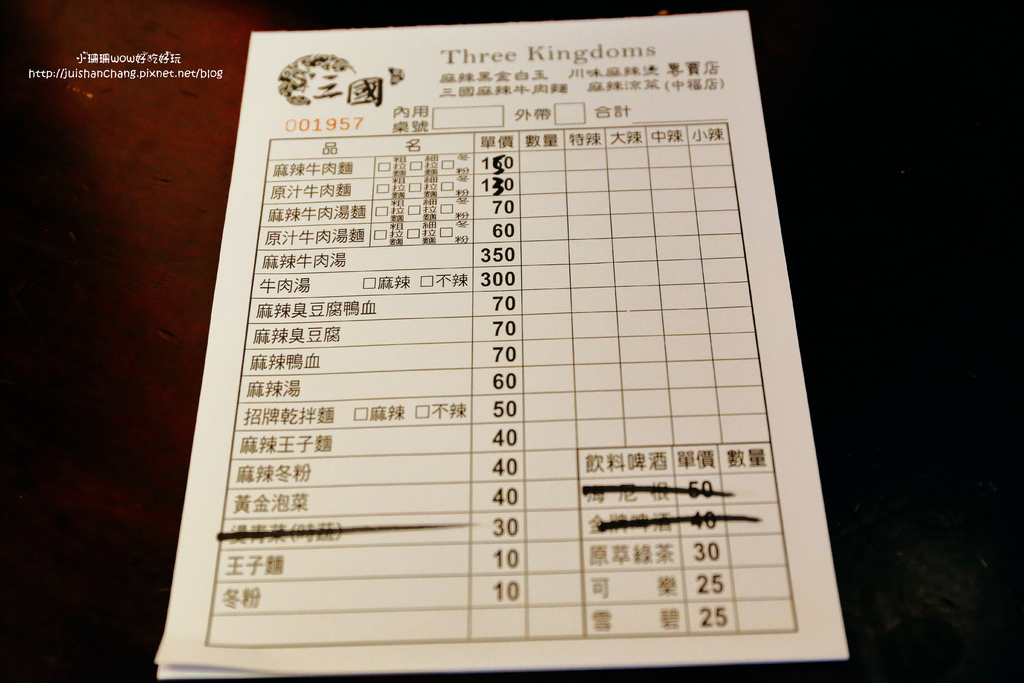 小珊珊wow好吃好玩
http://juishanchang.pixnet.net/blog
Three Kingdoms
三國
麻辣黑金白玉 川味麻辣燙 專賣店
三國麻辣牛肉麵 麻辣涼菜(中福店)
001957
內用 桌號 外帶 合計
品名 單價 數量 特辣 大辣 中辣 小辣
麻辣牛肉麵 □粗拉麵 □細拉麵 □冬粉 150
原汁牛肉麵 □粗拉麵 □細拉麵 □冬粉 130
麻辣牛肉湯麵 □粗拉麵 □細拉麵 □冬粉 70
原汁牛肉湯麵 □粗拉麵 □細拉麵 □冬粉 60
麻辣牛肉湯 350
牛肉湯 □麻辣 □不辣 300
麻辣臭豆腐鴨血 70
麻辣臭豆腐 70
麻辣鴨血 70
麻辣湯 60
招牌乾拌麵 □麻辣 □不辣 50
麻辣王子麵 40
麻辣冬粉 40
黃金泡菜 40
燙青菜(時蔬) 30
王子麵 10
冬粉 10
飲料啤酒 單價 數量
海尼根 50
金牌啤酒 40
原萃綠茶 30
可樂 25
雪碧 25